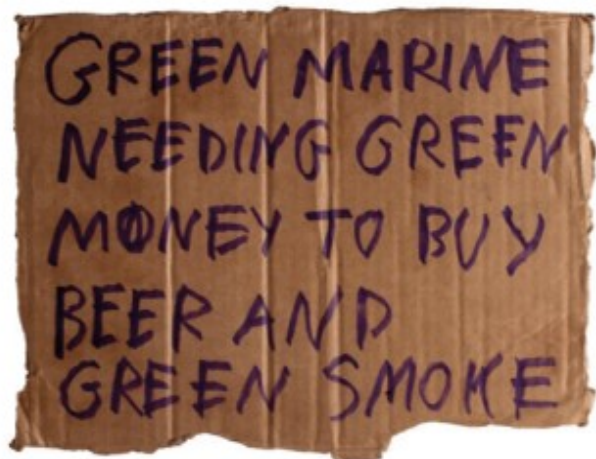 GREEN MARINE
NEEDING GREEN
MONEY TO BUY
BEER AND
GREEN SMOKE